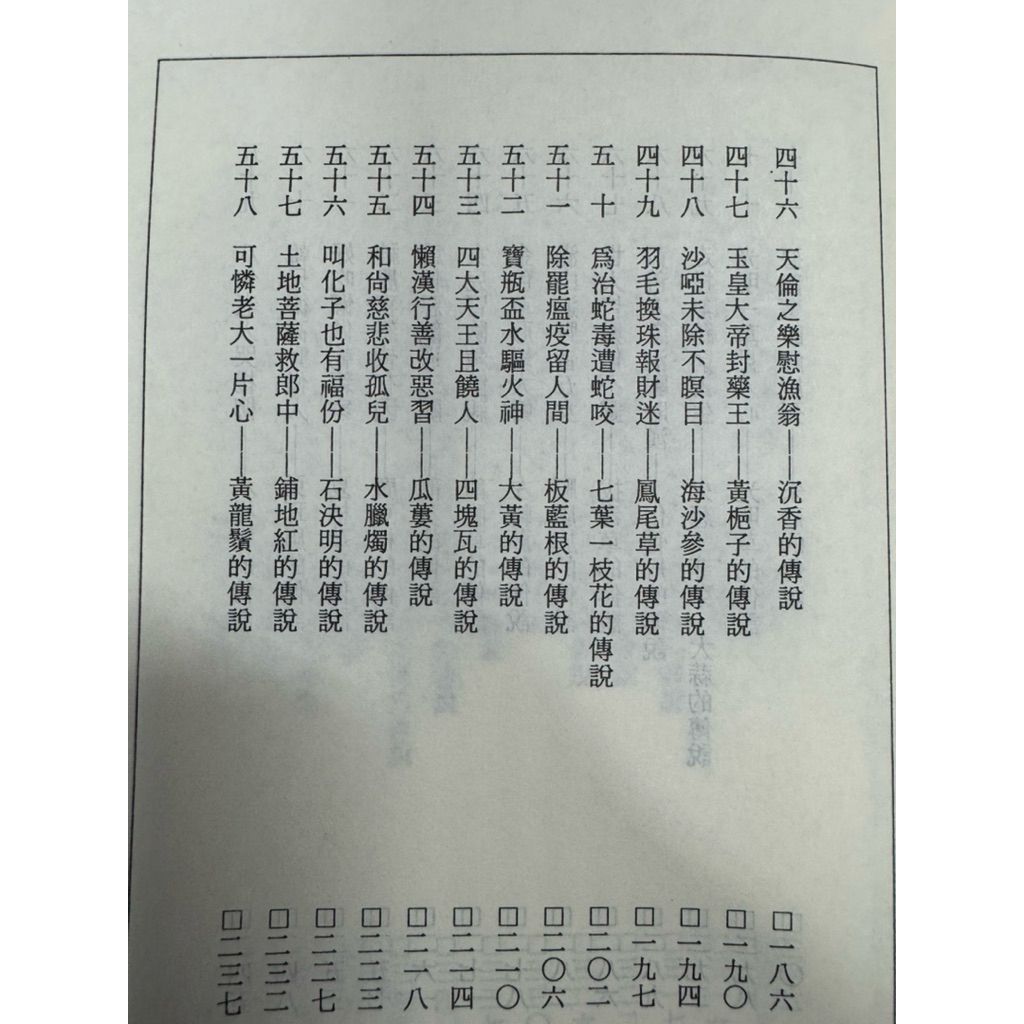 四十六　天倫之樂慰漁翁——沉香的傳說　□一八六
四十七　玉皇大帝封藥王——黃梔子的傳說　□一九〇
四十八　沙啞未除不瞑目——海沙參的傳說　□一九四
四十九　羽毛換珠報財迷——鳳尾草的傳說　□一九七
五　十　為治蛇毒遭蛇咬——七葉一枝花的傳說　□二〇二
五十一　除罷瘟疫留人間——板藍根的傳說　□二〇六
五十二　寶瓶盃水驅火神——大黃的傳說　□二一〇
五十三　四大天王且饒人——四塊瓦的傳說　□二一四
五十四　懶漢行善改惡習——瓜蔞的傳說　□二一八
五十五　和尚慈悲收孤兒——水臘燭的傳說　□二二三
五十六　叫化子也有福份——石決明的傳說　□二二七
五十七　土地菩薩救郎中——鋪地紅的傳說　□二三二
五十八　可憐老大一片心——黃龍鬚的傳說　□二三七